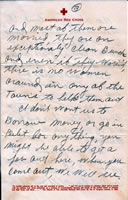 5
AMERICAN RED CROSS
and most of them are
married They are an
exceptionally clean bunch
and even if they weren't
there is no women
around in any of the
towns to help them out
I don't want to
borrow money or go in
debt for any thing you
might be able to get a
for out here when you
come out we will see